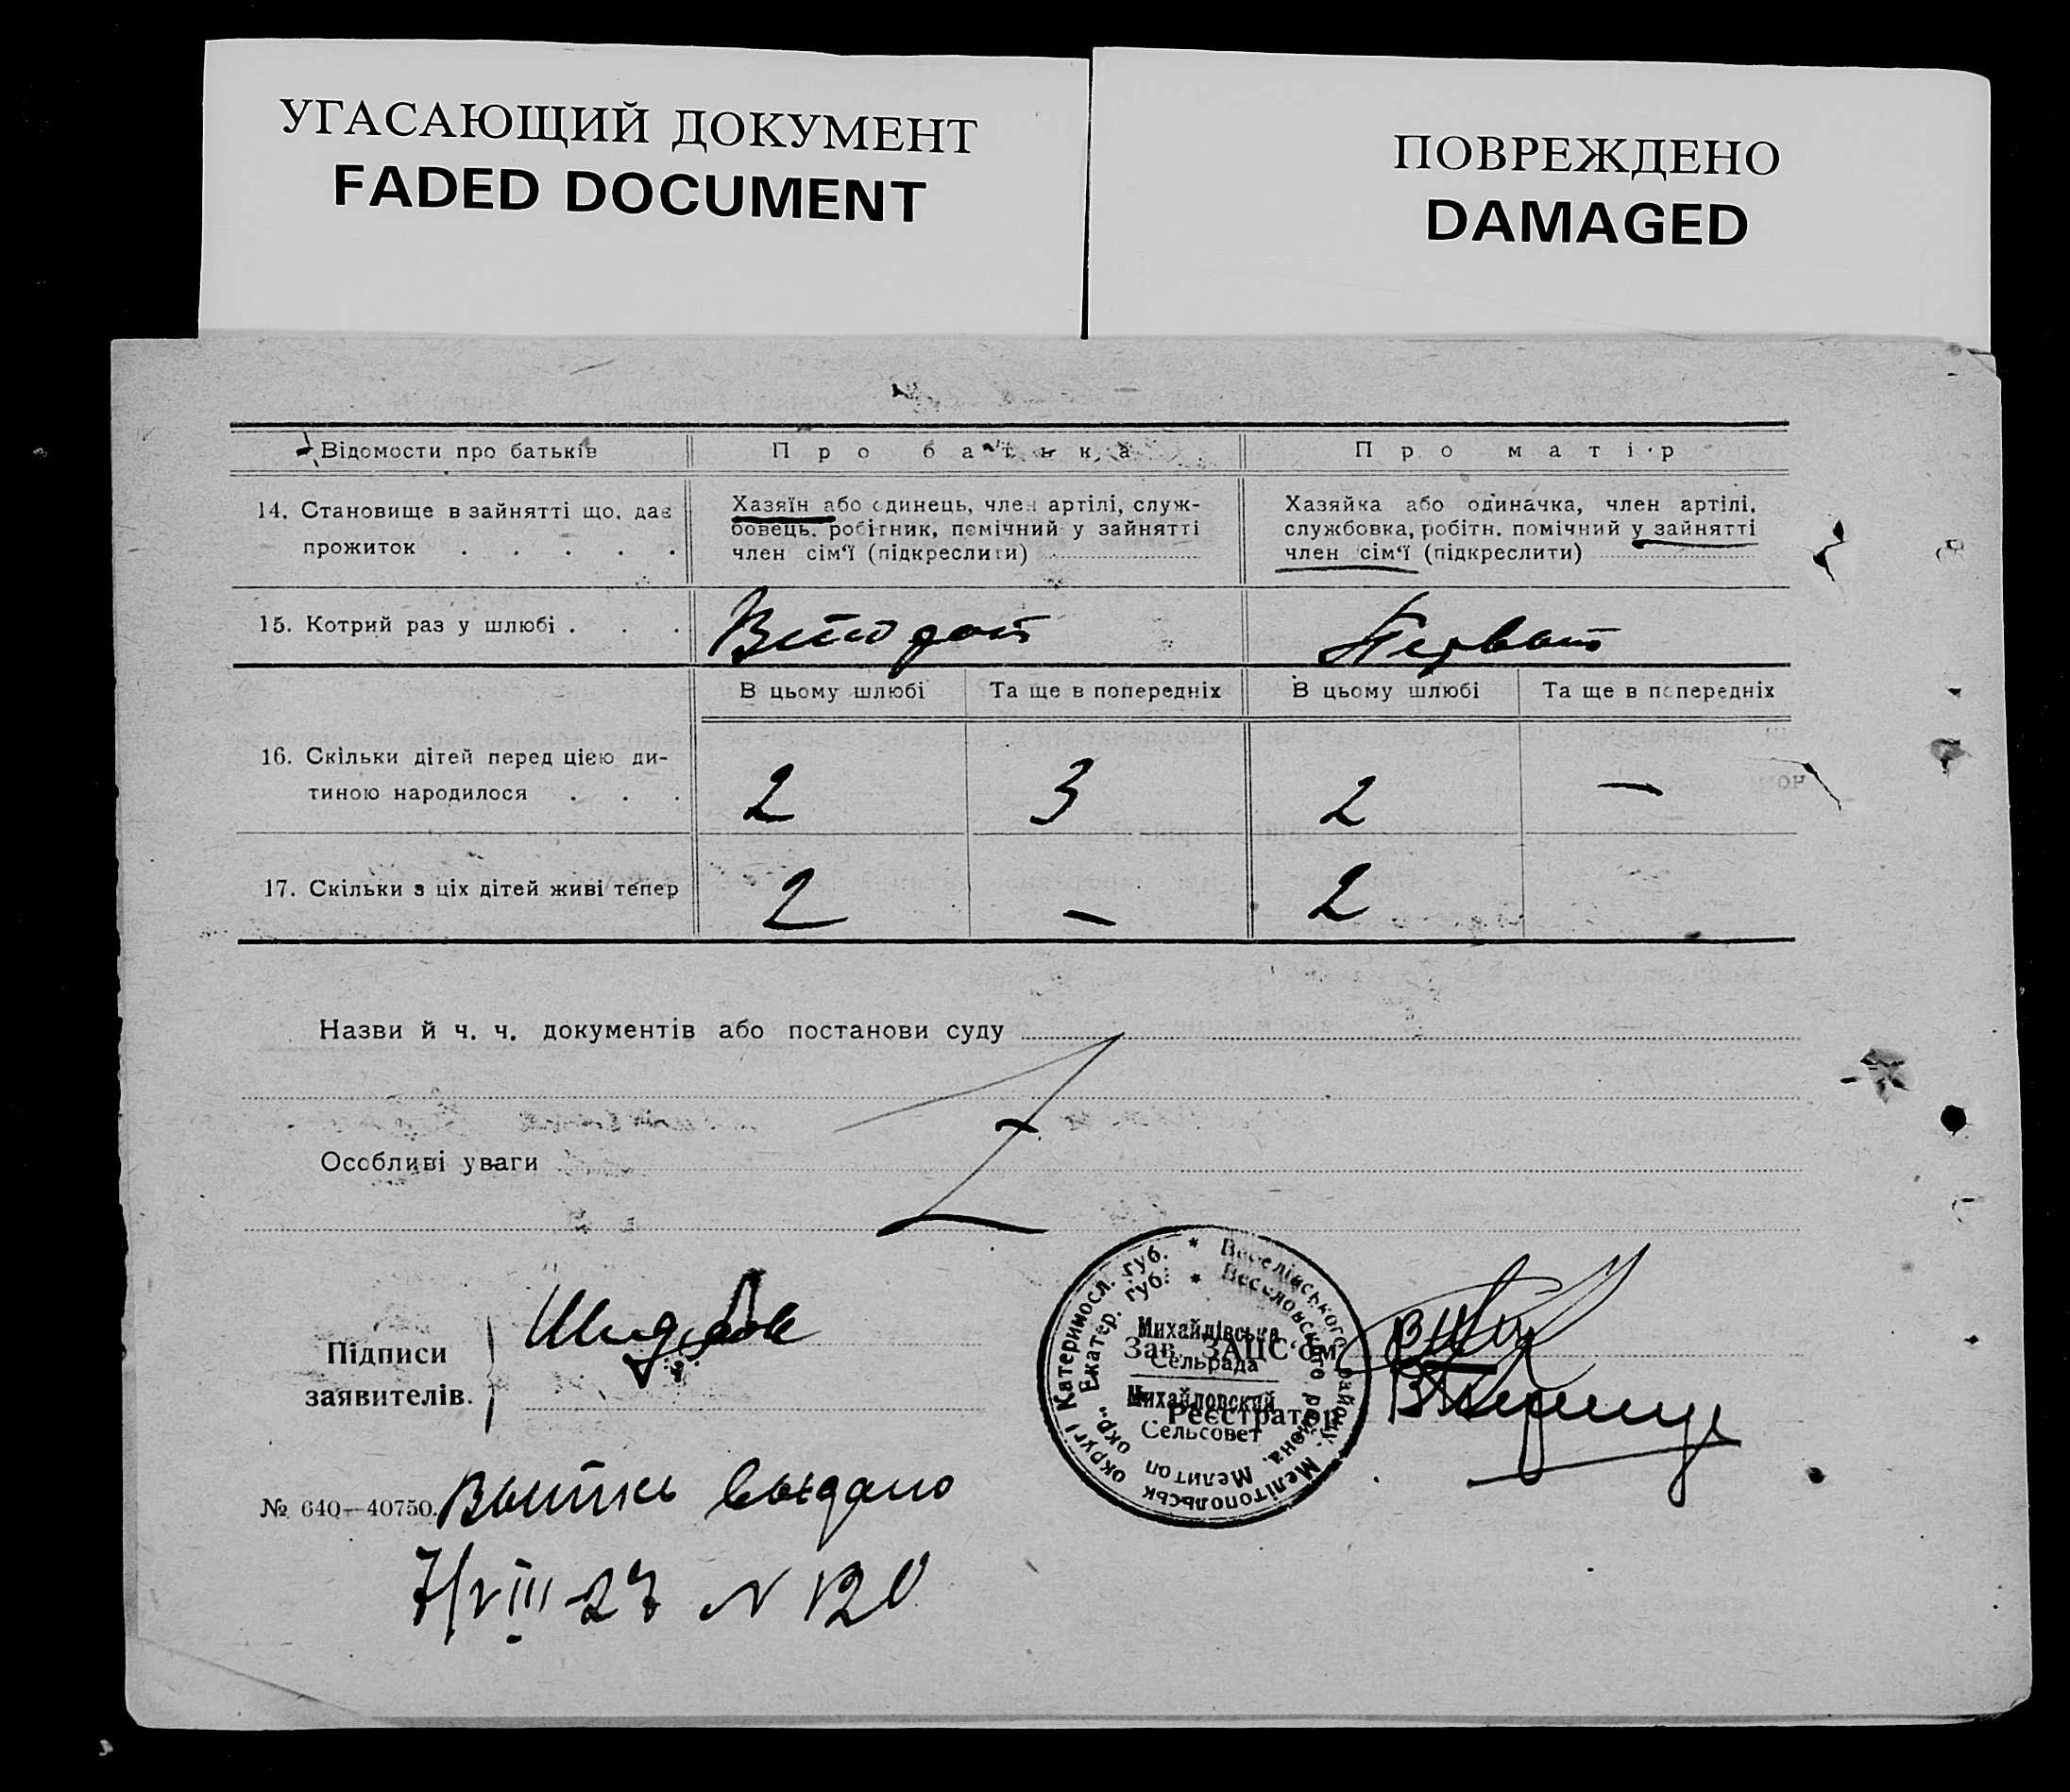 УГАСАЮЩИЙ ДОКУМЕНТ
FADED DOCUMENT
ПОВРЕЖДЕНО
DAMAGED
Відомости про батьків
Про батька
Про матір
14. Становище в зайнятті що, дає
прожиток . . . . .
Хазяїн або одинець, член артілі, служ-
бовець, робітник, помічний у зайнятті
член сім'ї (підкреслити)
Хазяйка або одиначка, член артілі,
службовка, робітн. помічний у зайнятті
член сім'ї (підкреслити)
15. Котрий раз у шлюбі . . .
Второй
Первой
В цьому шлюбі
Та ще в попередніх
В цьому шлюбі
Та ще в попередніх
16. Скільки дітей перед цією ди-
тиною народилося . . .
2
3
2
—
17. Скільки з ціх дітей живі тепер
2
—
2
Назви й ч. ч. документів або постанови суду
Особливі уваги
Підписи
заявителів.
Катериносл. губ. * Веселівського району. Мелітопольськ округі
Екатер. губ. * Веселовского района. Мелитоп окр.
Михайлівська
Сельрада
Михайловский
Сельсовет
Зав. ЗАЦС'ом
Реєстратор
№ 640—40750.
Выпись выдано
7/VIII-27 N 120